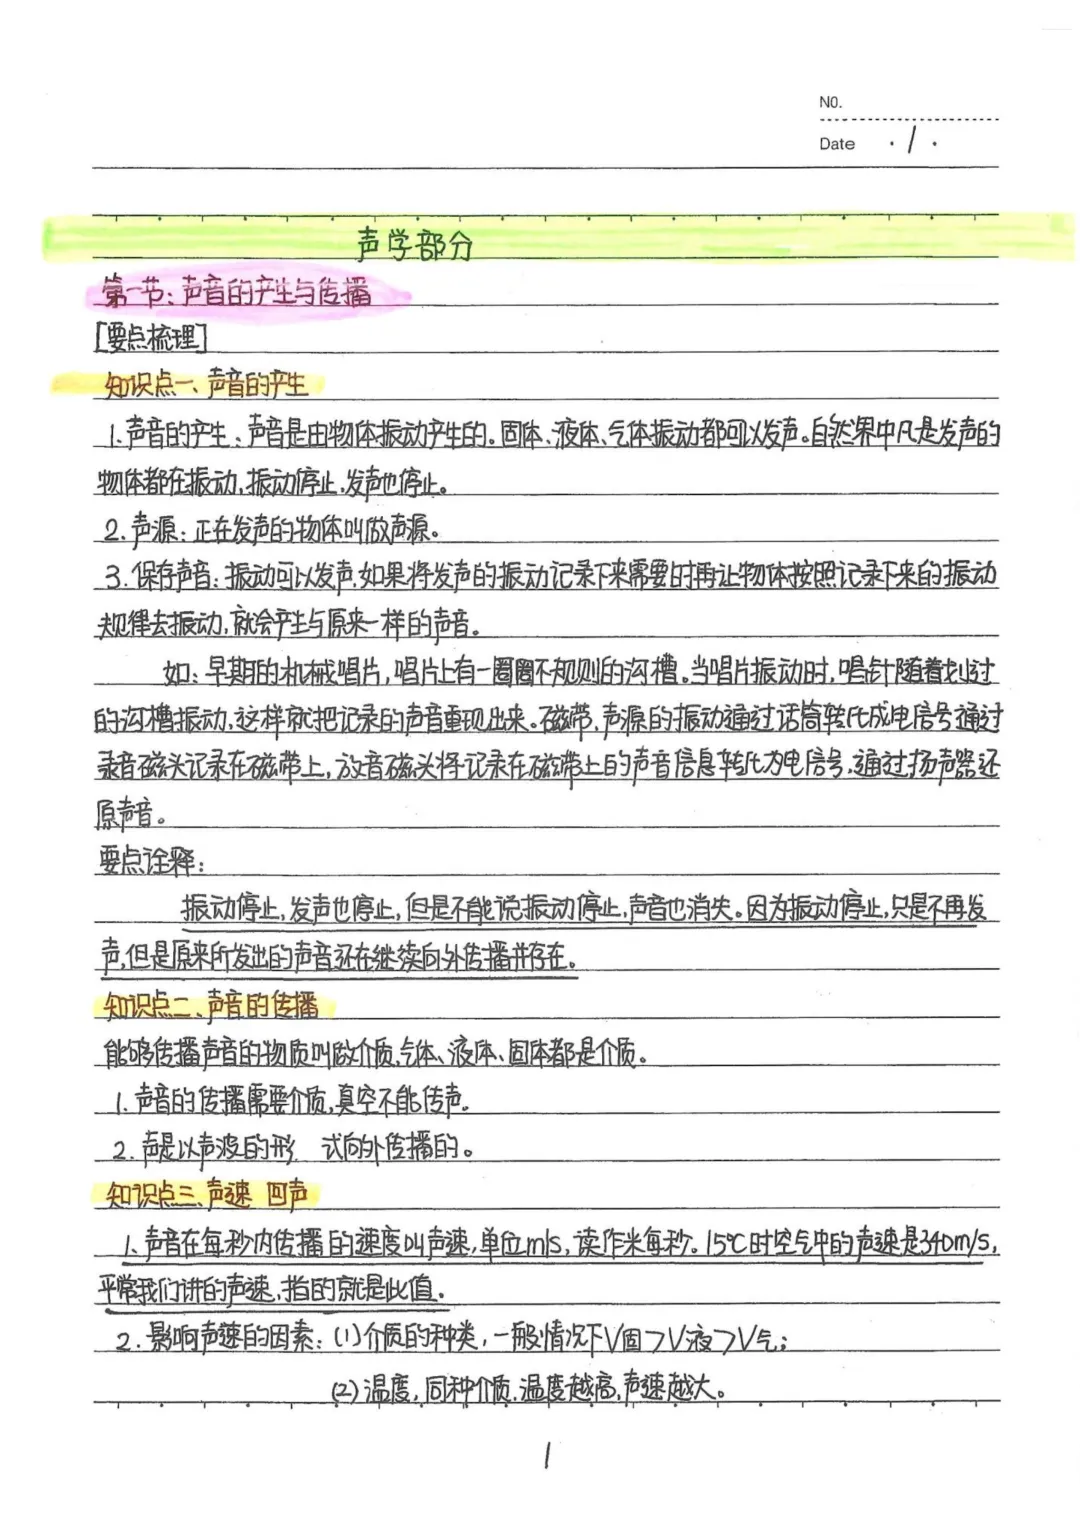 NO.
Date ·/·
声学部分
第一节:声音的产生与传播
[要点梳理]
知识点一、声音的产生
1.声音的产生:声音是由物体振动产生的。固体、液体、气体振动都可以发声。自然界中凡是发声的
物体都在振动,振动停止,发声也停止。
2.声源:正在发声的物体叫做声源。
3.保存声音:振动可以发声,如果将发声的振动记录下来需要时再让物体按照记录下来的振动
规律去振动,就会产生与原来一样的声音。
如:早期的机械唱片,唱片上有一圈圈不规则的沟槽。当唱片振动时,唱针随着划过
的沟槽振动,这样就把记录的声音重现出来。磁带,声源的振动通过话筒转化成电信号通过
录音磁头记录在磁带上,放音磁头将记录在磁带上的声音信息转化为电信号,通过扬声器还
原声音。
要点诠释:
振动停止,发声也停止,但是不能说振动停止,声音也消失。因为振动停止,只是不再发
声,但是原来所发出的声音还在继续向外传播并存在。
知识点二、声音的传播
能够传播声音的物质叫做介质,气体、液体、固体都是介质。
1.声音的传播需要介质,真空不能传声。
2.声是以声波的形 式向外传播的。
知识点三、声速 回声
1.声音在每秒内传播的速度叫声速,单位m/s,读作米每秒。15℃时空气中的声速是340m/s,
平常我们讲的声速,指的就是此值。
2.影响声速的因素:(1)介质的种类,一般情况下V固>V液>V气;
(2)温度,同种介质,温度越高,声速越大。
1